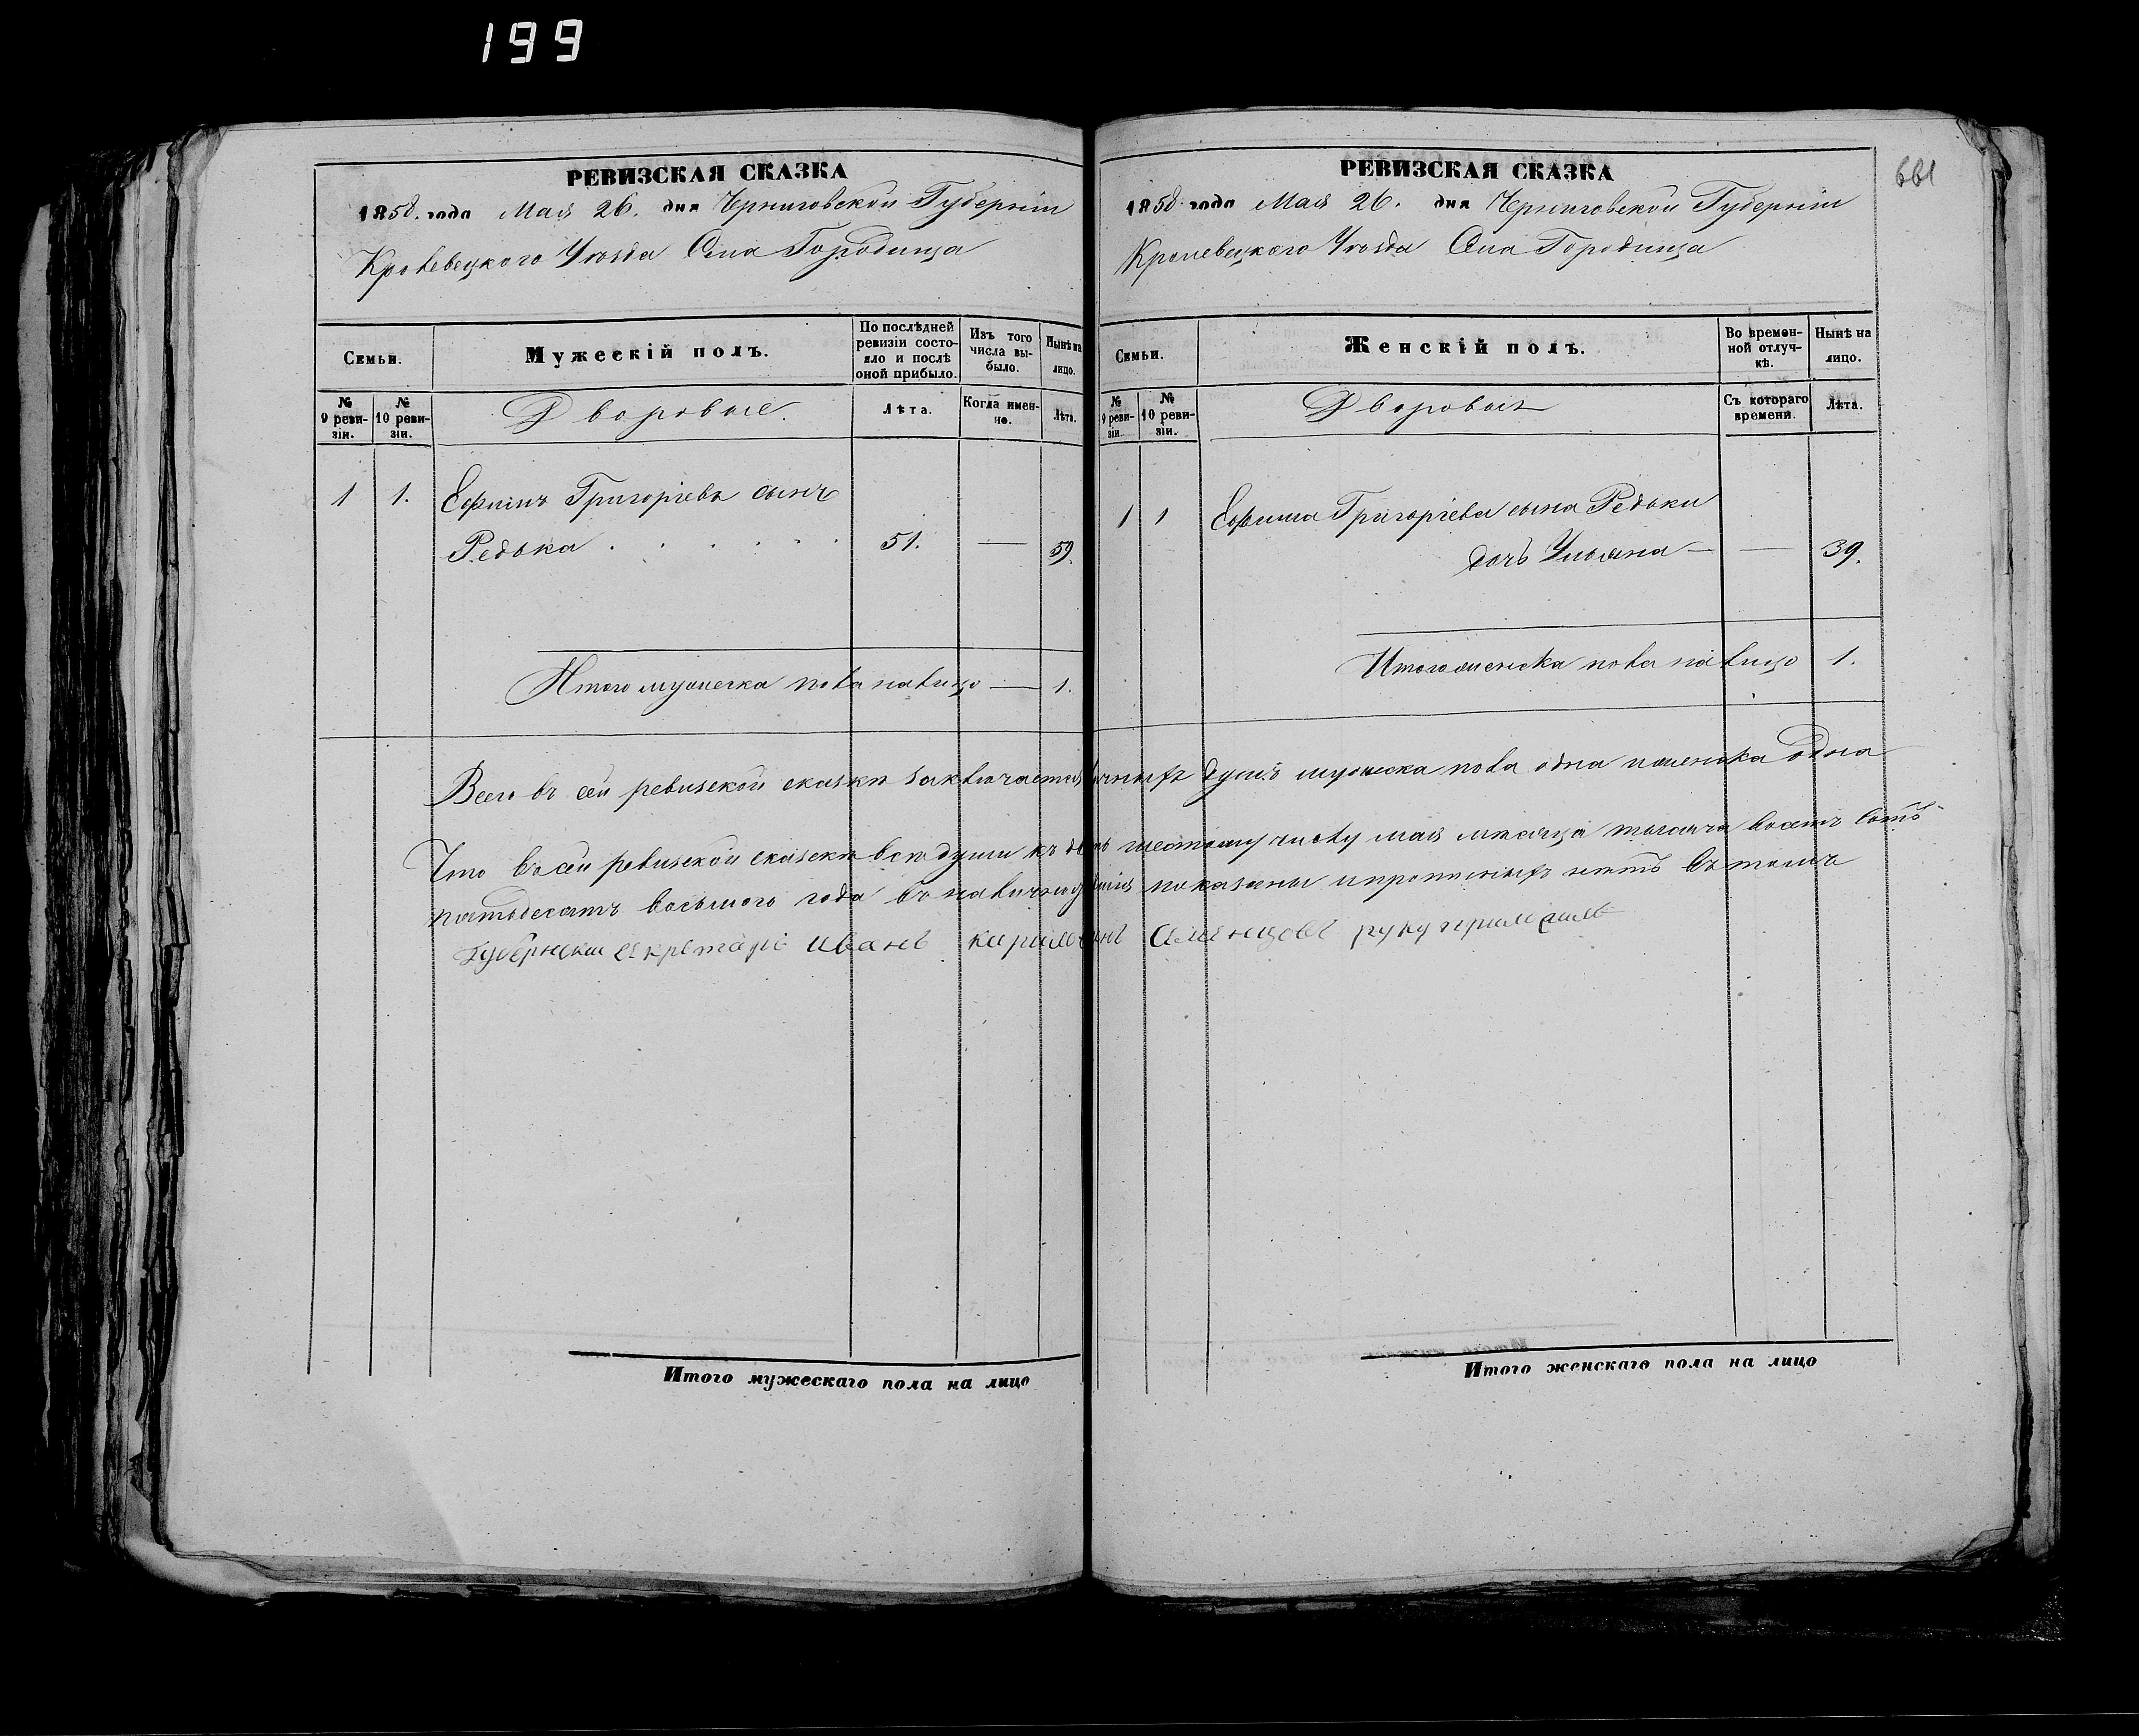 199
661
РЕВИЗСКАЯ СКАЗКА
1858. года Мая 26. дня Черниговской Губерніи
Кролевецкого Уѣзда Села Городища
Семьи.
Мужескій полъ.
По послѣдней ревизіи состояло и послѣ оной прибыло.
Изъ того числа выбыло.
Нынѣ на лицо.
№ 9 ревизіи.
№ 10 ревизіи.
Дворовые.
Лѣта.
Когда именно.
Лѣта.
1 1. Ефимъ Григоріевъ сынъ
Редька . . . . . . 51. — 59.
Итого мужеска пола налицо — 1.
РЕВИЗСКАЯ СКАЗКА
1858 года Мая 26. дня Черниговской Губерніи
Кролевецкого Уѣзда Села Городища
Семьи.
Женскій полъ.
Во временной отлучкѣ.
Нынѣ на лицо.
№ 9 ревизіи.
№ 10 ревизіи.
Дворовыя
Съ котораго времени.
Лѣта.
1 1 Ефима Григоріева сына Редьки
дочь Ульяна — — 39.
Итого женска пола налицо 1.
Всего въ сей ревизской сказкѣ заключается душъ мужеска пола одна и женска одна
Что въ сей ревизской сказкѣ всѣ души къ шестому числу мая мѣсяца тысяча восемъ сотъ
пятьдесятъ восьмого года въ показаны и нѣтъ въ томъ
Губернски секретарь Иванъ руку приложилъ
Итого мужескаго пола на лицо
Итого женскаго пола на лицо